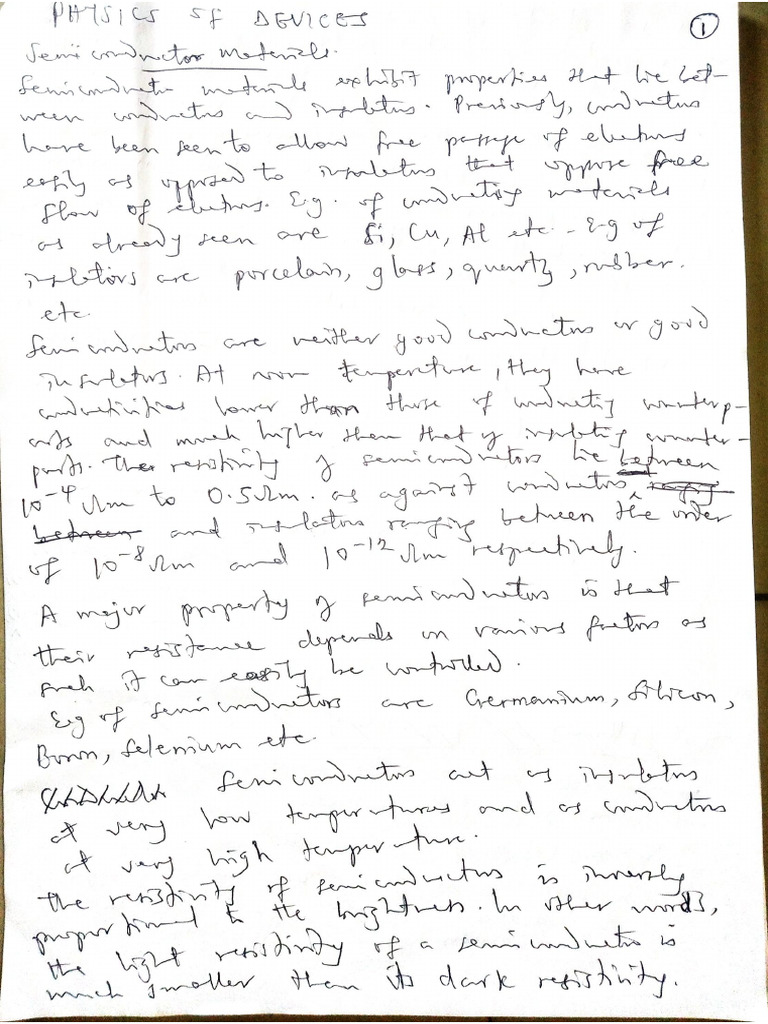 PHYSICS OF DEVICES
1
Semiconductor Materials.
Semiconductor materials exhibit properties that lie bet-
ween conductors and insulators. Previously, conductors
have been seen to allow free passage of electrons
easily as opposed to insulators that oppose free
flow of electrons. E.g. of conducting materials
as already seen are Si, Cu, Al etc. E.g of
insulators are porcelain, glass, quartz, rubber.
etc.
Semiconductors are neither good conductors or good
insulators. At room temperature, they have
conductivities lower than those of conducting counterp-
arts and much higher than that of insulating counter-
parts. The resistivity of semiconductors lie between
10⁻⁴ Ωm to 0.5Ωm. as against conductors ranging
between and insulators ranging between the order
of 10⁻⁸Ωm and 10⁻¹²Ωm respectively.
A major property of semiconductors is that
their resistance depends on various factors as
such it can easily be controlled.
E.g of semiconductors are Germanium, Silicon,
Boron, Selenium etc.
Semiconductors act as insulators
at very low temperatures and as conductors
at very high temperature.
The resistivity of semiconductors is inversely
proportional to the brightness. In other words,
the light resistivity of a semiconductor is
much smaller than its dark resistivity.